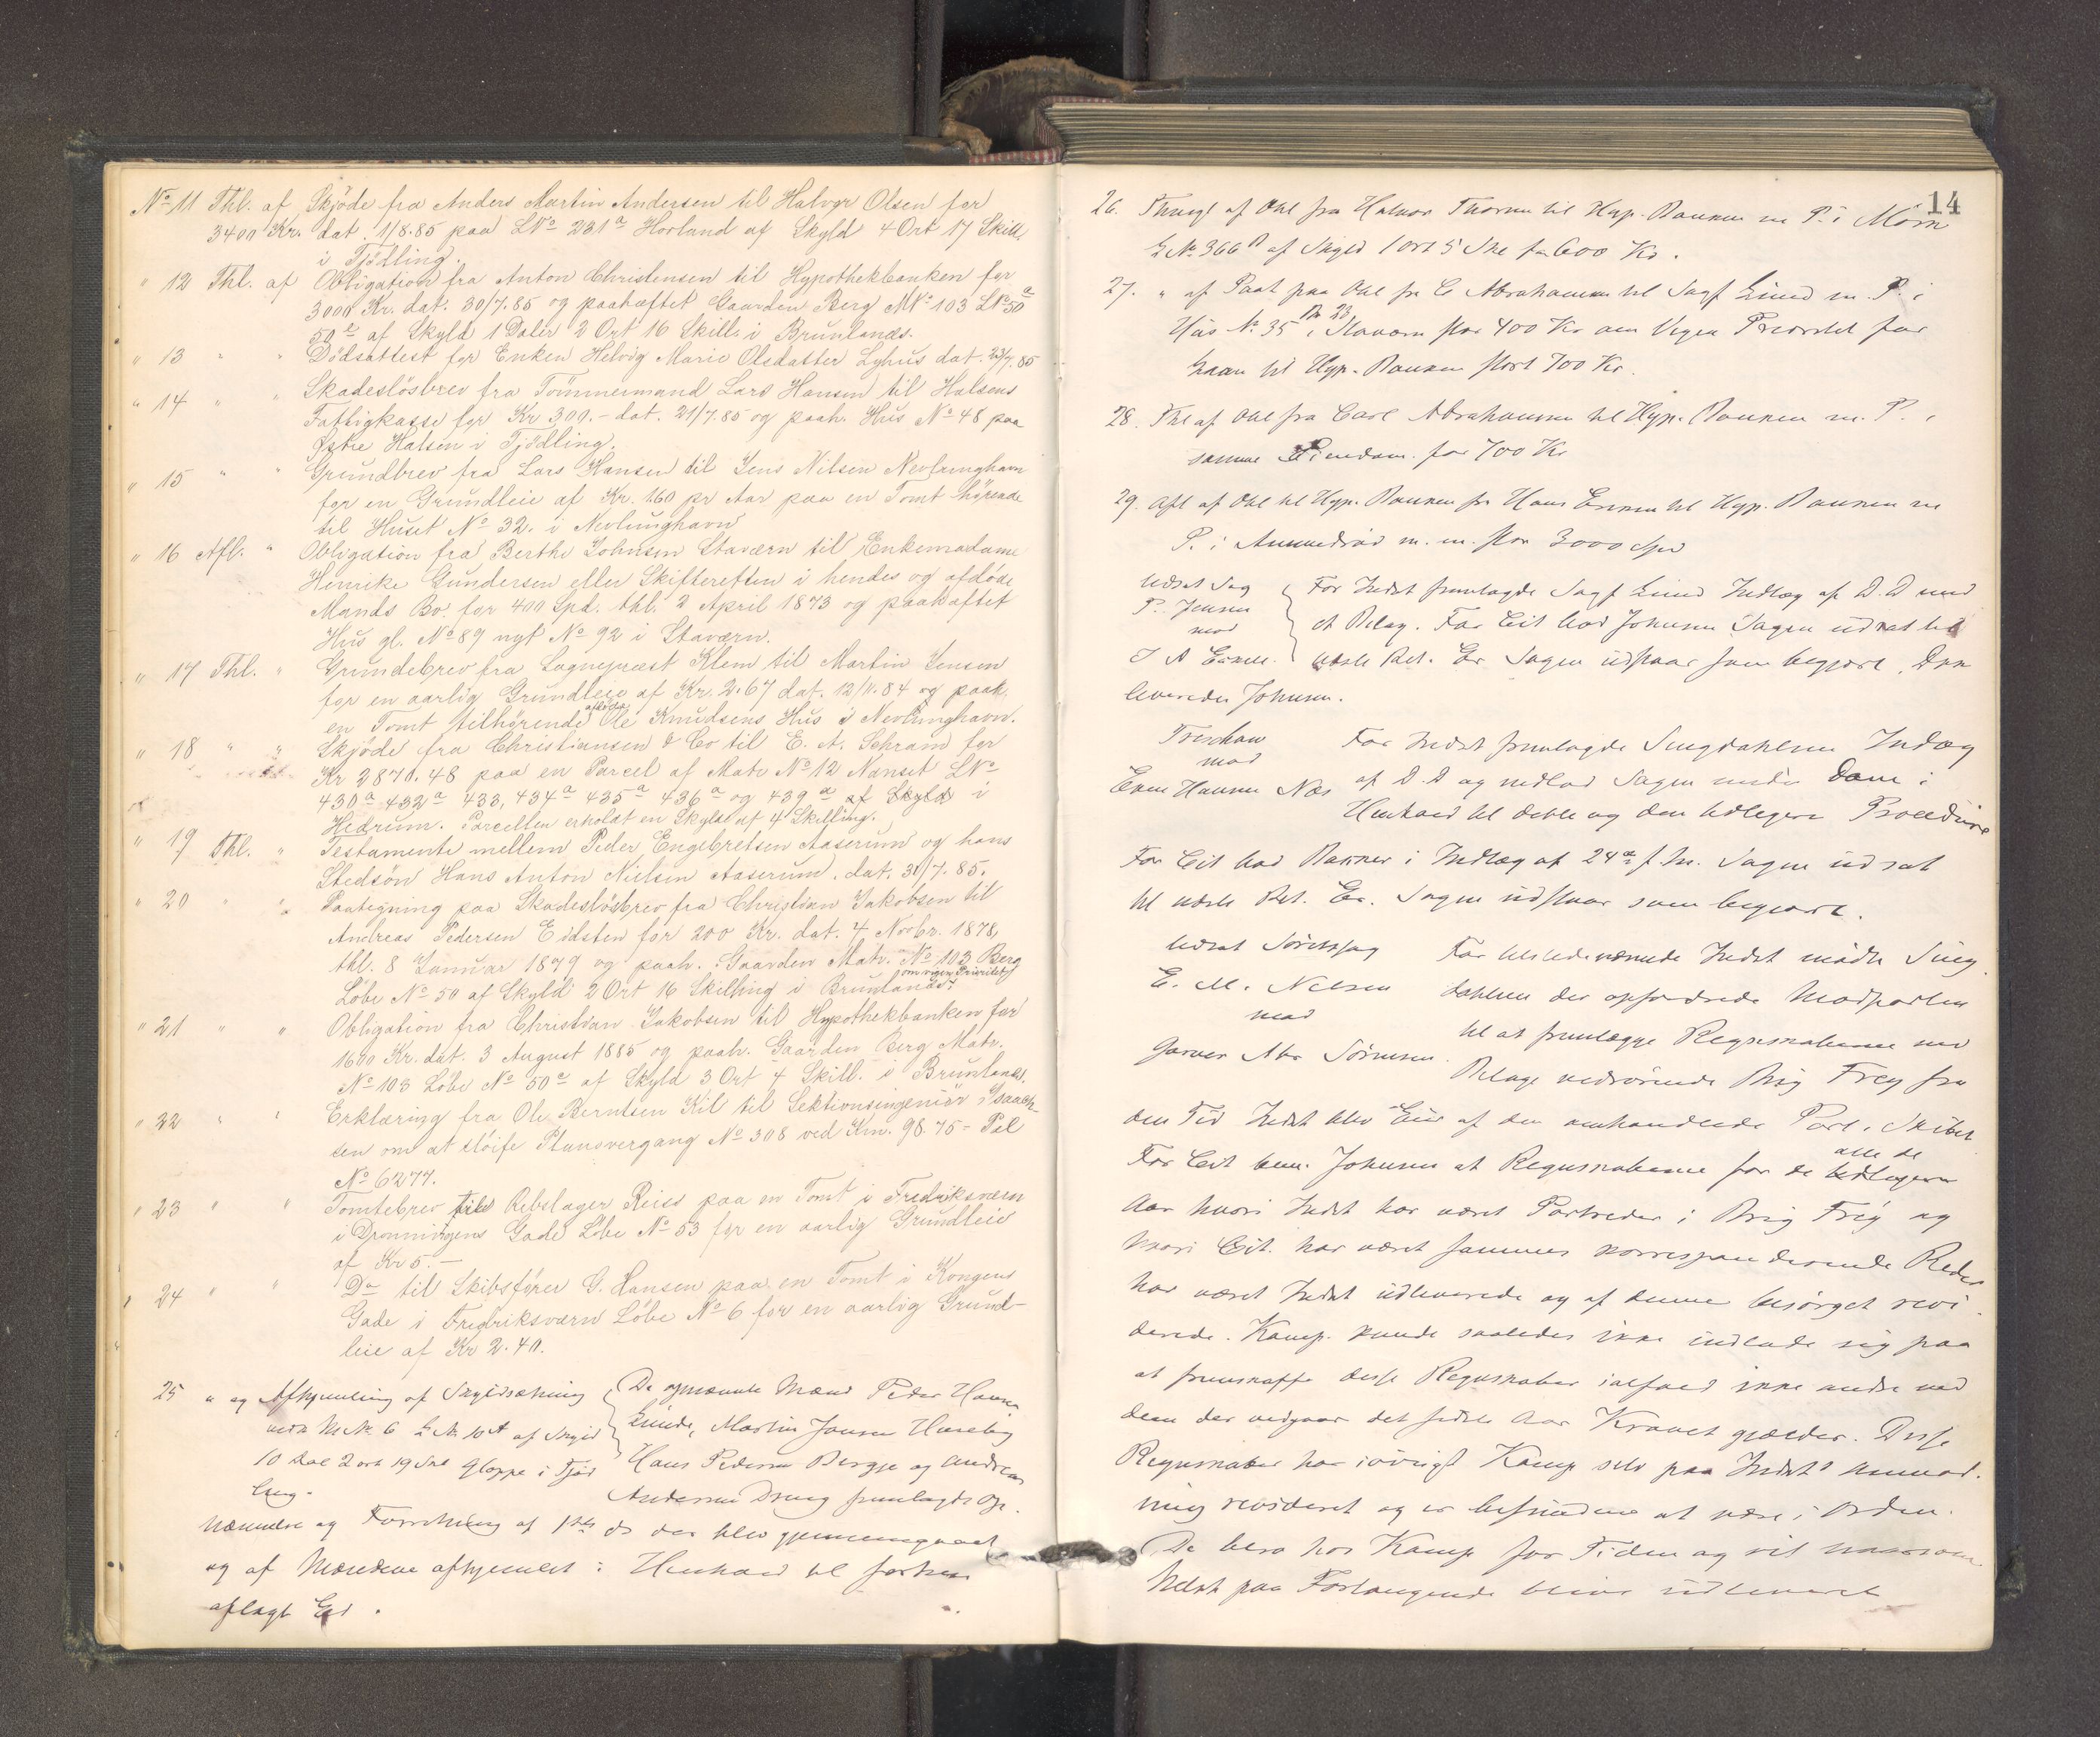 No 11 Thl. af Skjöde fra Anders Martin Andersen til Halvor Olsen for
3400 Kr. dat. 1/8.85 paa LNo 231a Horland af Skyld 4 Ort 17 Skill.
i Tjödling.
" 12 Thl. af Obligation fra Anton Christensen til Hypothekbanken for
3000 Kr. dat. 30/7.85 og paahæftet Gaarden Berg MNo 103 LNo 50a
50e af Skyld 1 Daler 2 Ort 16 Skill. i Brunlanæs.
" 13 " " Dödsattest for Enken Helvig Marie Olsdatter Lyhus dat. 23/7.85
" 14 " " Skadeslösbrev fra Tömmermand Lars Hansen til Halsens
Fattigkasse for Kr 300.- dat. 21/7.85 og paah. Hus No 48 paa
Østre Halsen i Tjödling.
" 15 " " Grundbrev fra Lars Hansen til Jens Nilsen Nevlunghavn
for en Grundleie af Kr. 1.60 pr Aar paa en Tomt hörende
til Huset No 32. i Nevlunghavn
" 16 Afl. " Obligation fra Berthe Johnsen Staværn til Enkemadame
Henrike Gundersen eller Skifteretten i hendes og afdöde
Mands Bo for 400 Spd. thl. 2 April 1873 og paahæftet
Hus gl. No 89 nyt No 92 i Staværn.
" 17 Thl. " Grundebrev fra Sognepræst Klem til Martin Jensen
for en aarlig Grundleie af Kr. 2.67 dat. 12/11.84 og paah.
en Tomt tilhörende afdöde Ole Knudsens Hus i Nevlunghavn.
" 18 " " Skjöde fra Christiansen & Co til E. A. Schram for
Kr 2870.48 paa en Parcel af Matr No 12 Nanset LNo
430a 432a 433, 434a 435a 436a og 439a af Skyld i
Hedrum. Parcellen erholdt en Skyld af 4 Skilling.
" 19 Thl. " Testamente mellem Peder Engebretsen Aaserum og hans
Stedsön Hans Anton Nielsen Aaserum. dat. 31/7.85.
" 20 " " Paategning paa Skadeslösbrev fra Christian Jakobsen til
Andreas Pedersen Eidsten for 200 Kr. dat. 7 Novbr. 1878,
thl. 8 Januar 1879 og paah. Gaarden Matr. No 103 Berg
Löbe No 50 af Skyld 2 Ort 16 Skilling i Brunlanæs. om vigen Prioritet
" 21 " " Obligation fra Christian Jakobsen til Hypothekbanken for
1600 Kr. dat. 3 August 1885 og paah. Gaarden Berg Matr.
No 103 Löbe No 50a af Skyld 3 Ort 4 Skill. i Brunlanæs.
" 22 " " Erklæring fra Ole Berntsen Kil til Sektionsingeniör Isaach-
sen om at slöife Planovergang No 308 ved Km. 98.75 = Pæl
No 6277.
" 23 " " Tomtebrev til Rebslager Reiss paa en Tomt i Fredriksværn
i Dronningens Gade Löbe No 53 for en aarlig Grundleie
af Kr 5.-
" 24 " " Do til Skibsförer G. Hansen paa en Tomt i Kongens
Gade i Fredriksværn Löbe No 6 for en aarlig Grund-
leie af Kr 2.40.
25 " og Afhjemling af Skyldsætning De opnævnte Mænd Peder Hansen
MNo. 6 LNo 10A af Skyld Lunde, Martin Jansen Huseby
10 Dal 2 ort 19 Skl Gloppe i Tjød Hans Pedersen Bergje og Andreas
ling. Andersen fremlagde Op-
nævnelse og Forretning af der blev gjennemgaaet
og af Mændene afhjemlet i Henhold til forhen
aflagt Ed.
14
26. Tingl af Obl fra Halvor Thoresen til Hyp. Banken m P. i Mörn
LNo 366 B af Skyld 1 ort 5 Skl for 600 Kr.
27. " af Paat paa Obl fra C Abrahamsen til Sagf Lund m. P. i
Hus No 35 i Stavern stor 400 Kr om Vigen Prioritet for
Laan til Hyp. Banken stort 700 Kr.
28. Thl af Obl fra Carl Abrahamsen til Hyp. Banken m. P. i
samme Eiendom for 700 Kr
29. Afl af Obl til Hyp. Banken fra Hans Ersen til Hyp. Banken m
P. i m. m. stor 3000 Spd
Udsat Sag For Indst fremlagde Sagf Lund Indlæg af D. D med
P. Jensen et Bilag. For Cit bad Johnsen Sagen udsat til
mod
J A næste Ret. Er. Sagen udstaar som begjært. Den
leveredes Johnsen.
Treschow For Indst fremlagde Smedahlsen Indlæg
mod
Even Hansen Næs af D. D og indlod Sagen under Dom i
Henhold til dette og den tidligere Procedure
For Cit bad Bakker i Indlæg af 24de f. M. Sagen udsat
til næste Ret. Er. Sagen udstaar som begjært.
Udsat For Indst mödte
E. M. Nilsen der opfordrede Modparten
mod til at fremlægge Regnskaberne med
Garver Abr Sörensen. Bilage vedrörende Brig Frey fra
den Tid Indst blev Eier af den omhandlede Part i Skibet
For Cit bem. Johnsen at Regnskaberne for de alle de tidligere
Aar hvori Indst har været Partreder i Brig Freÿ og
hvori Cit. har været sammes korresponderende Reder
har været Indst udleverede og af denne besörget revi-
derede. Komp. kunde saaledes ikke indlade sig paa
at fremskaffe disse Regnskaber ialfald ikke andre end
dem der vedgaar det sidste Aar Kravet gjælder. Disse
Regnskaber har iövrigt Komp selv paa Indsts Anmod-
ning revideret og er befundne at være i Orden.
De bero hos Komp for Tiden og vil naarsom
helst paa Forlangende blive udleveret